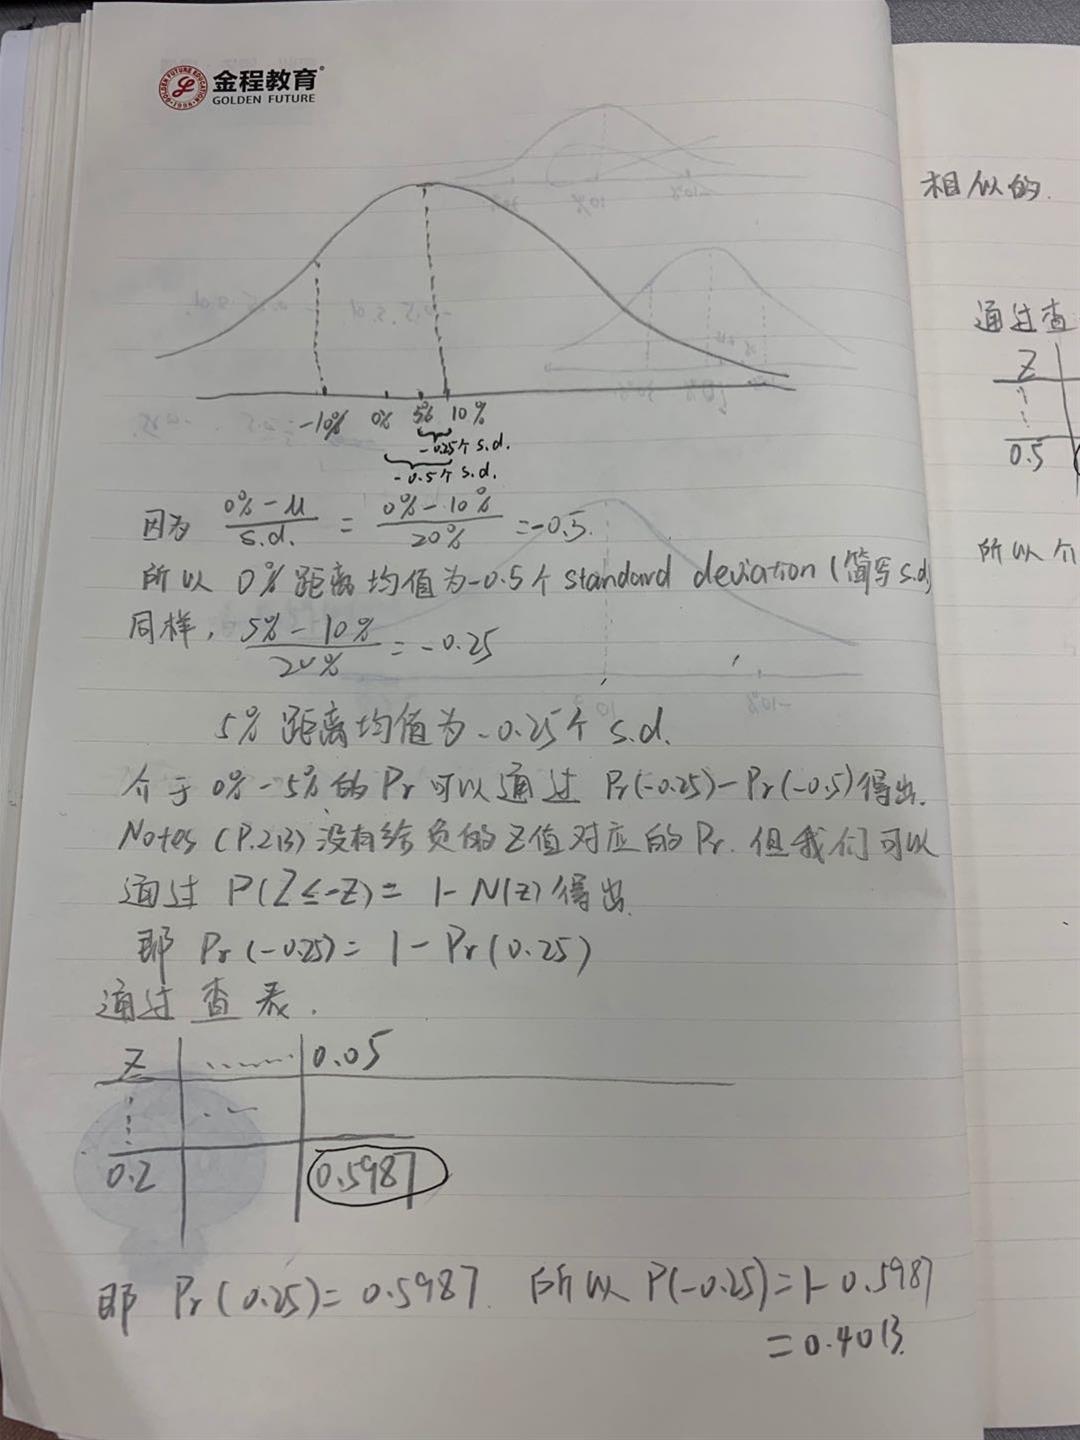 金程教育
GOLDEN FUTURE
-10% 0% 5% 10%
-0.25个 s.d.
-0.5个 s.d.
因为 (0%-μ)/s.d. = (0%-10%)/20% = -0.5.
所以 0%距离均值为-0.5个 standard deviation (简写 s.d)
同样, (5%-10%)/20% = -0.25
5%距离均值为-0.25个 s.d.
介于 0%-5%的 Pr 可以通过 Pr(-0.25)-Pr(-0.5)得出.
Notes (P.213) 没有给负的Z值对应的 Pr. 但我们可以
通过 P(Z≤-Z)= 1-N(z) 得出.
即 Pr(-0.25)= 1-Pr(0.25)
通过查表.
Z ....... 0.05
0.2 0.5987
即 Pr(0.25)= 0.5987. 所以 P(-0.25)=1-0.5987
=0.4013.
相似的.
通过查
Z
0.5
所以 介